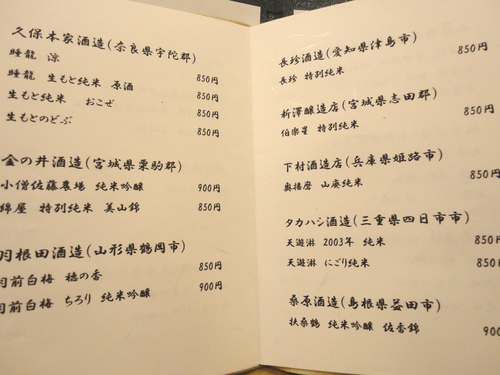 久保本家酒造(奈良県宇陀郡)
睡龍 涼 850円
睡龍 生もと純米 原酒 850円
生もと純米 おこぜ 850円
生もとのどぶ 850円
金の井酒造(宮城県栗駒郡)
小僧佐藤農場 純米吟醸 900円
錦屋 特別純米 美山錦 850円
羽根田酒造(山形県鶴岡市)
羽前白梅 穂の香 850円
羽前白梅 ちろり 純米吟醸 900円
長珍酒造(愛知県津島市)
長珍 特別純米 850円
新澤醸造店(宮城県志田郡)
伯楽星 特別純米 850円
下村酒造店(兵庫県姫路市)
奥播磨 山廃純米 850円
タカハシ酒造(三重県四日市市)
天遊琳 2003年 純米 850円
天遊琳 にごり純米 850円
桑原酒造(島根県益田市)
扶桑鶴 純米吟醸 佐香錦 900